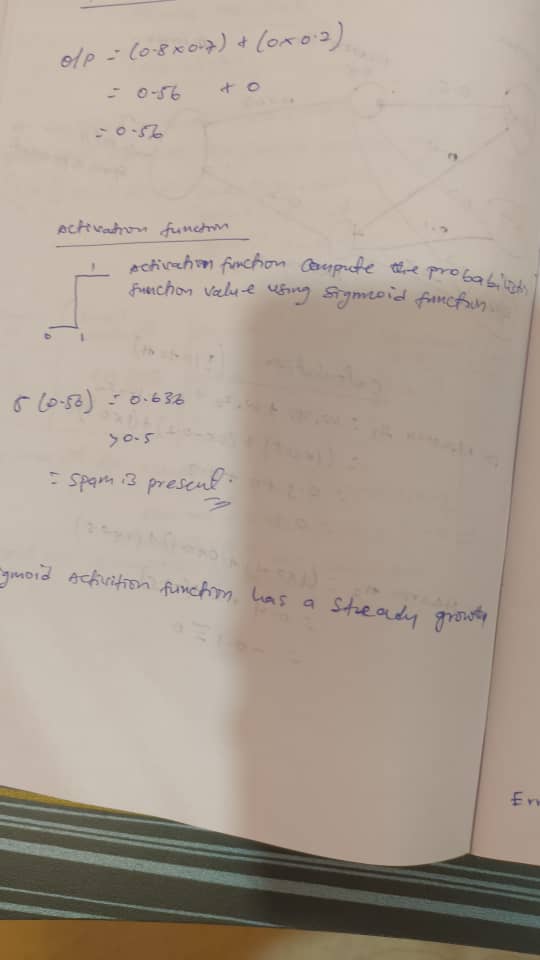 o/p = (0.8x0.7) + (0x0.2)
= 0.56 + 0
= 0.56
Activation function
1 Activation function compute the probabilistic
function value using sigmoid function.
0 1
σ (0.56) = 0.636
>0.5
= spam is present.
gmoid Activition function has a stready growth
Err